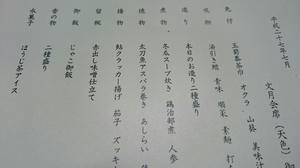 平成二十七年七月
文月会席(天色)
先付 玉蜀黍茶巾 オクラ 山葵 美味汁
吸物 湯引き鱧 青味 順菜 素麺 打
造り 本日のお造り二種盛り
煮物 冬瓜スープ炊き 鶏治部煮 人参
焼物 太刀魚アスパラ巻き あしらい
揚物 鮎クラッカー揚げ 茄子 ズッキ
留椀 赤出し味噌仕立て
御飯 じゃこ御飯
香の物 二種盛り
水菓子 ほうじ茶アイス